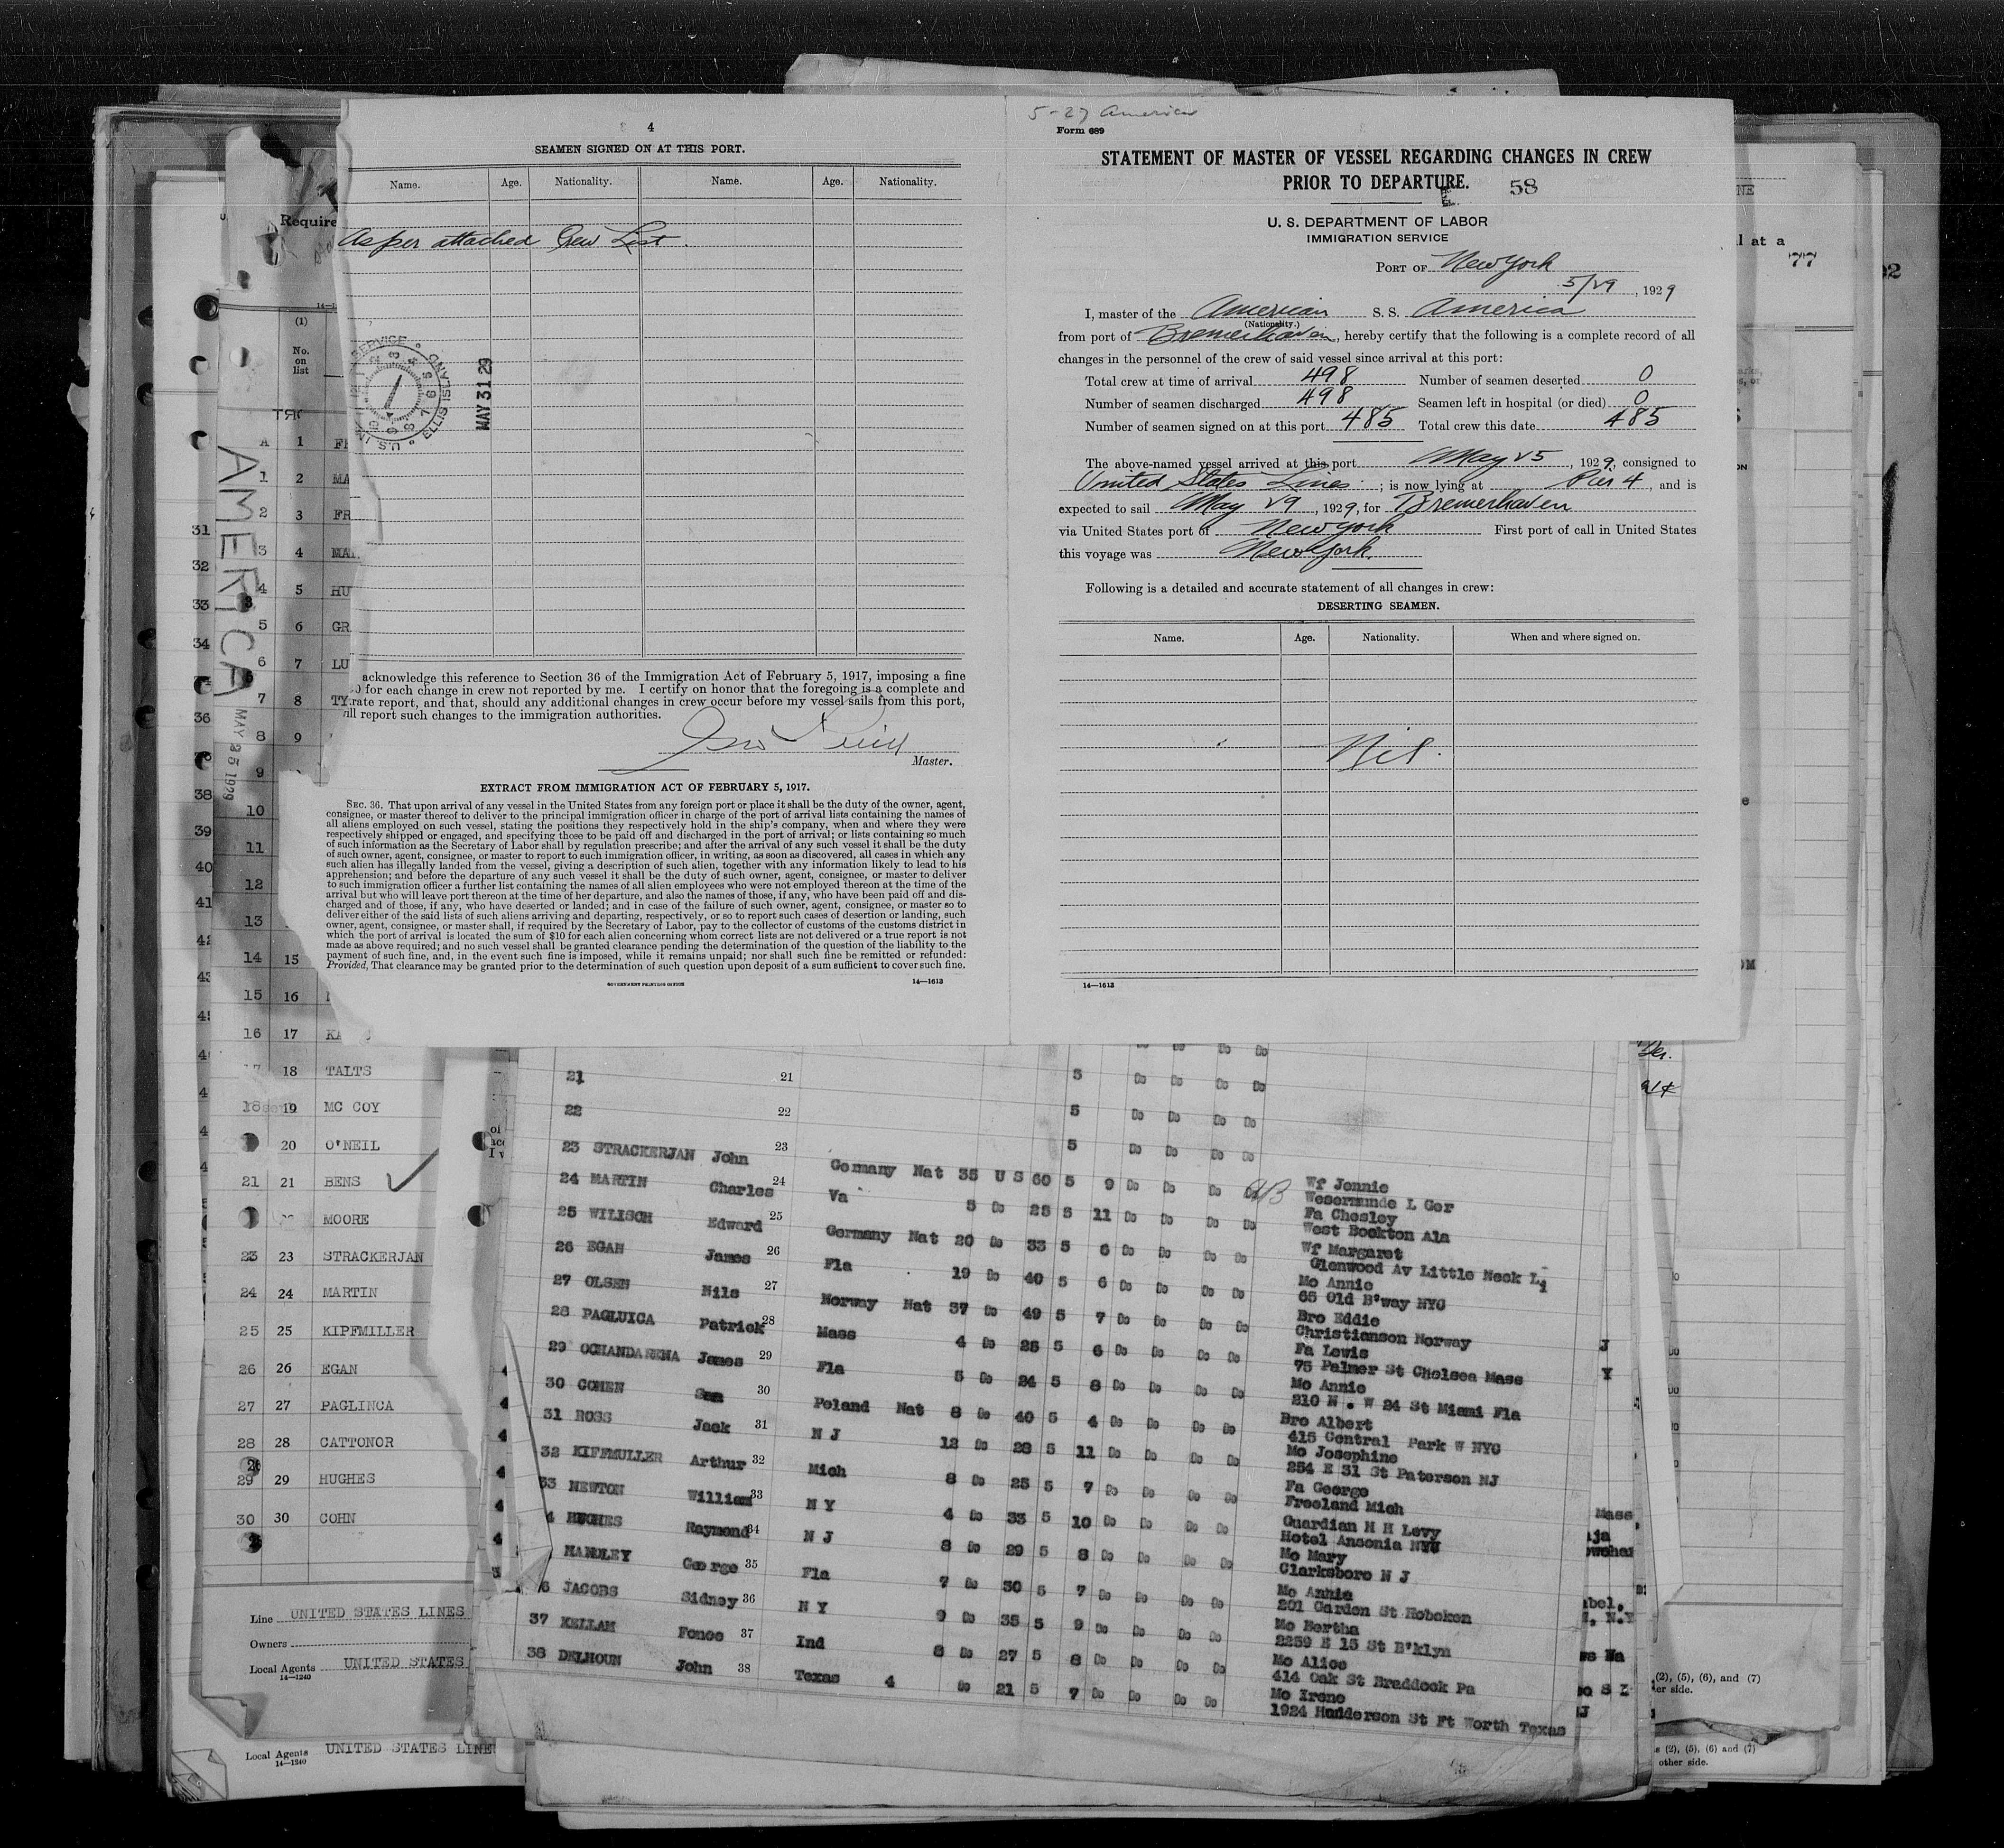 4
SEAMEN SIGNED ON AT THIS PORT.
Name. Age. Nationality. Name. Age. Nationality.
As per attached Crew List.
MAY 31 29
ELLIS ISLAND
acknowledge this reference to Section 36 of the Immigration Act of February 5, 1917, imposing a fine
0 for each change in crew not reported by me. I certify on honor that the foregoing is a complete and
rate report, and that, should any additional changes in crew occur before my vessel sails from this port,
ill report such changes to the immigration authorities.
Master.
EXTRACT FROM IMMIGRATION ACT OF FEBRUARY 5, 1917.
SEC. 36. That upon arrival of any vessel in the United States from any foreign port or place it shall be the duty of the owner, agent,
consignee, or master thereof to deliver to the principal immigration officer in charge of the port of arrival lists containing the names of
all aliens employed on such vessel, stating the positions they respectively hold in the ship's company, when and where they were
respectively shipped or engaged, and specifying those to be paid off and discharged in the port of arrival; or lists containing so much
of such information as the Secretary of Labor shall by regulation prescribe; and after the arrival of any such vessel it shall be the duty
of such owner, agent, consignee, or master to report to such immigration officer, in writing, as soon as discovered, all cases in which any
such alien has illegally landed from the vessel, giving a description of such alien, together with any information likely to lead to his
apprehension; and before the departure of any such vessel it shall be the duty of such owner, agent, consignee, or master to deliver
to such immigration officer a further list containing the names of all alien employees who were not employed thereon at the time of the
arrival but who will leave port thereon at the time of her departure, and also the names of those, if any, who have been paid off and dis-
charged and of those, if any, who have deserted or landed; and in case of the failure of such owner, agent, consignee, or master so to
deliver either of the said lists of such aliens arriving and departing, respectively, or so to report such cases of desertion or landing, such
owner, agent, consignee, or master shall, if required by the Secretary of Labor, pay to the collector of customs of the customs district in
which the port of arrival is located the sum of $10 for each alien concerning whom correct lists are not delivered or a true report is not
made as above required; and no such vessel shall be granted clearance pending the determination of the question of the liability to the
payment of such fine, and, in the event such fine is imposed, while it remains unpaid; nor shall such fine be remitted or refunded:
Provided, That clearance may be granted prior to the determination of such question upon deposit of a sum sufficient to cover such fine.
GOVERNMENT PRINTING OFFICE 14—1613
5-27 America
Form 689
STATEMENT OF MASTER OF VESSEL REGARDING CHANGES IN CREW
PRIOR TO DEPARTURE. 58
U. S. DEPARTMENT OF LABOR
IMMIGRATION SERVICE
PORT OF New York
5/29, 1929
I, master of the American S. S. America
(Nationality.)
from port of Bremerhaven, hereby certify that the following is a complete record of all
changes in the personnel of the crew of said vessel since arrival at this port:
Total crew at time of arrival 498 Number of seamen deserted 0
Number of seamen discharged 498 Seamen left in hospital (or died) 0
Number of seamen signed on at this port 485 Total crew this date 485
The above-named vessel arrived at this port May 25, 1929, consigned to
United States Lines; is now lying at Pier 4, and is
expected to sail May 29, 1929, for Bremerhaven
via United States port of New York First port of call in United States
this voyage was New York.
Following is a detailed and accurate statement of all changes in crew:
DESERTING SEAMEN.
Name. Age. Nationality. When and where signed on.
Nil.
14—1613
Require
(1)
No.
on
list
AMERICA
MAY 25 1929
17 18 TALTS
19 MC COY
20 O'NEIL
21 21 BENS
MOORE
23 23 STRACKERJAN
24 24 MARTIN
25 25 KIPFMILLER
26 26 EGAN
27 27 PAGLINCA
28 28 CATTONOR
29 29 HUGHES
30 30 COHN
Line UNITED STATES LINES
Owners
Local Agents UNITED STATES
14—1240
Local Agents UNITED STATES LINE
14—1240
21 21 5 Do Do Do Do
22 22 5 Do Do Do Do
23 STRACKERJAN John 23 Germany Nat 35 U S 60 5 9 Do Do Do Do Wf Jennie
Wesermunde L Ger
24 MARTIN Charles 24 Va 5 Do 25 5 11 Do Do Do Do Fa Chesley
West Bookton Ala
25 WILISCH Edward 25 Germany Nat 20 Do 33 5 6 Do Do Do Do Wf Margaret
Glenwood Av Little Neck L i
26 EGAN James 26 Fla 19 Do 40 5 6 Do Do Do Do Mo Annie
65 Old B'way NYC
27 OLSEN Nils 27 Norway Nat 37 Do 49 5 7 Do Do Do Do Bro Eddie
Christianson Norway
28 PAGLUICA Patrick 28 Mass 4 Do 25 5 6 Do Do Do Do Fa Lewis
75 Palmer St Chelsea Mass
29 OCHANDARENA James 29 Fla 5 Do 24 5 8 Do Do Do Do Mo Annie
210 N . W 24 St Miami Fla
30 COHEN Sam 30 Poland Nat 8 Do 40 5 4 Do Do Do Do Bro Albert
415 Central Park W NYC
31 ROSS Jack 31 N J 12 Do 28 5 11 Do Do Do Do Mo Josephine
254 E 31 St Paterson NJ
32 KIFFMULLER Arthur 32 Mich 8 Do 25 5 7 Do Do Do Do Fa George
Freeland Mich
33 NEWTON William 33 N Y 4 Do 33 5 10 Do Do Do Do Guardian H H Levy
Hotel Ansonia NYU
4 HUGHES Raymond 34 N J 8 Do 29 5 8 Do Do Do Do Mo Mary
Clarksboro N J
HANDLEY George 35 Fla 7 Do 30 5 7 Do Do Do Do Mo Annie
201 Garden St Hoboken
6 JACOBS Sidney 36 N Y 9 Do 35 5 9 Do Do Do Do Mo Bertha
2259 E 15 St B'klyn
37 KELLAM Fonce 37 Ind 8 Do 27 5 8 Do Do Do Do Mo Alice
414 Oak St Braddock Pa
38 DELHOUN John 38 Texas 4 Do 21 5 7 Do Do Do Do Mo Irene
1924 Hudderson St Ft Worth Texas
l at a
77
(2), (5), (6), and (7)
er side.
(2), (5), (6) and (7)
other side.